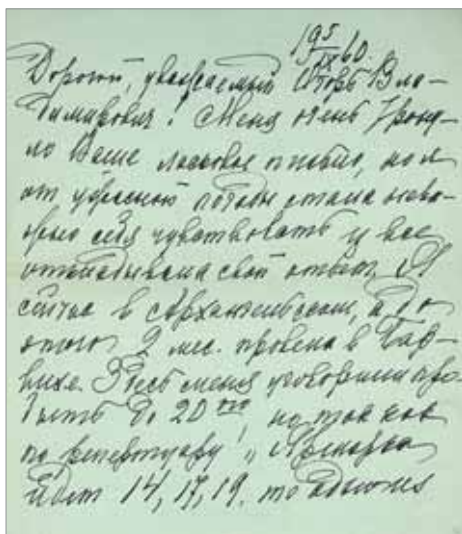 19 5/IX 60
Дорогой, уважаемый Игорь Вла-
димирович! Меня очень трону-
ло Ваше ласковое письмо, но я
от ужасной погоды стала нева-
жно себя чувствовать и все
откладывала свой ответ. Я
сейчас в Архангельском, а до
этого 2 мес. провела в Бар-
вихе. Здесь меня уговорили про-
быть до 20го, но так как
по репертуару „
идет 14, 17, 19, то